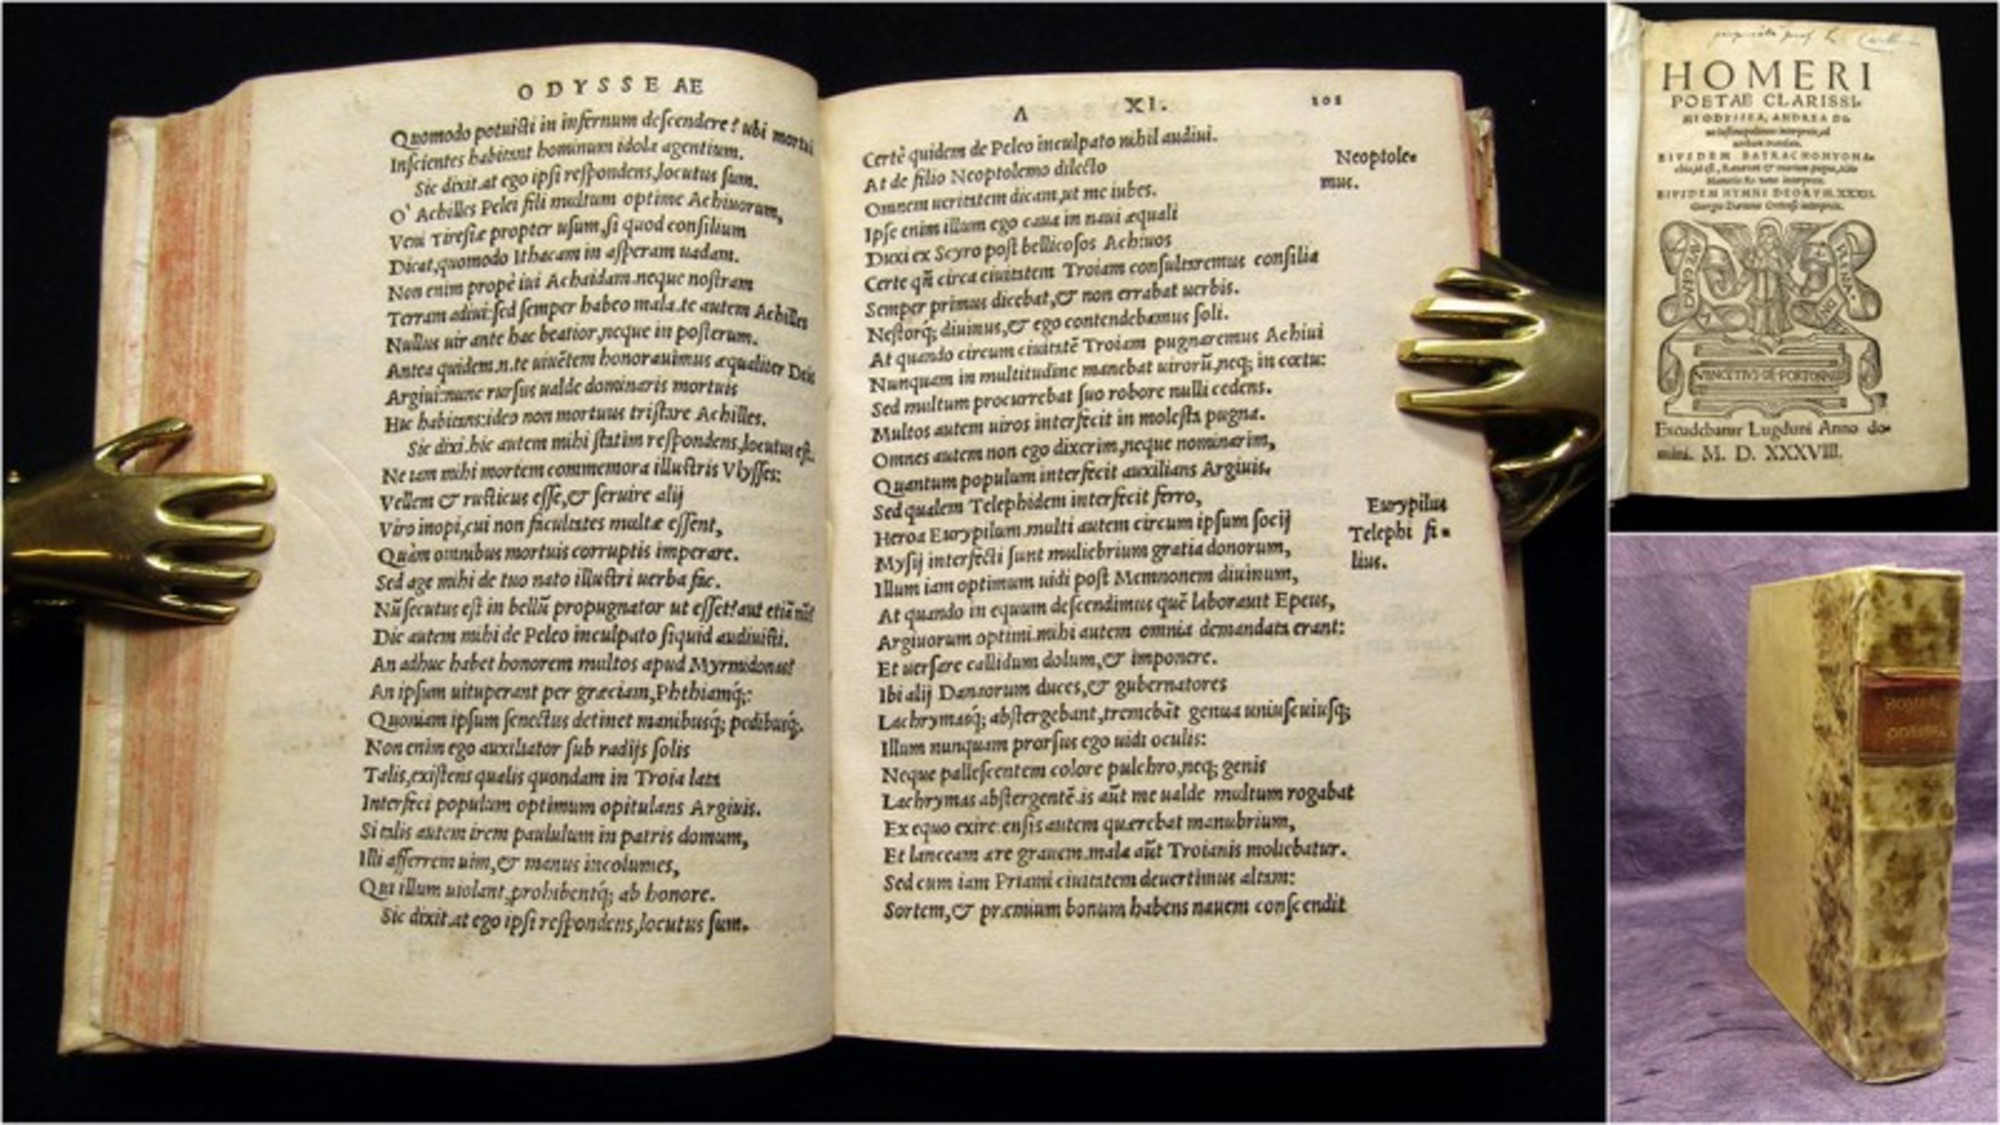 ODYSSEAE
Quomodo potuisti in infernum descendere? ubi mortui
Inscientes habitant hominum idola agentium.
Sic dixit.at ego ipsi respondens,locutus sum.
O' Achilles Pelei fili multum optime Achiuorum,
Veni Tiresiæ propter usum,si quod consilium
Dicat,quomodo Ithacam in asperam uadam.
Non enim propè iui Achaidam.neque nostram
Terram adiui:sed semper habeo mala.te autem Achilles
Nullus uir ante hac beatior,neque in posterum.
Antea quidem.n.te uiuẽtem honorauimus æqualiter Deis
Argiui:nunc rursus ualde dominaris mortuis
Hic habitans:ideo non mortuus tristare Achilles.
Sic dixi.hic autem mihi statim respondens,locutus est.
Ne iam mihi mortem commemora illustris Vlysses:
Vellem & rusticus esse,& seruire alij
Viro inopi,cui non facultates multæ essent,
Quàm omnibus mortuis corruptis imperare.
Sed age mihi de tuo nato illustri uerba fac.
Nũ secutus est in bellũ propugnator ut esset?aut etiã nũ?
Dic autem mihi de Peleo inculpato siquid audiuisti.
An adhuc habet honorem multos apud Myrmidonas?
An ipsum uituperant per græciam,Phthiamq́;:
Quoniam ipsum senectus detinet manibusq́; pedibusq́;.
Non enim ego auxiliator sub radijs solis
Talis,existens qualis quondam in Troia lata
Interfeci populum optimum opitulans Argiuis.
Si talis autem irem paululum in patris domum,
Illi afferrem uim,& manus incolumes,
Qui illum uiolant,prohibentq́; ab honore.
Sic dixit.at ego ipsi respondens,locutus sum.
Λ XI. 101
Certè quidem de Peleo inculpato nihil audiui.
At de filio Neoptolemo dilecto
Neoptole=
mus.
Omnem ueritatem dicam,ut me iubes.
Ipse enim illum ego caua in naui æquali
Duxi ex Scyro post bellicosos Achiuos
Certe qñ circa ciuitatem Troiam consultaremus consilia
Semper primus dicebat,& non errabat uerbis.
Nestorq́; diuinus,& ego contendebamus soli.
At quando circum ciuitatẽ Troiam pugnaremus Achiui
Nunquam in multitudine manebat uirorũ,neq; in cœtu:
Sed multum procurrebat suo robore nulli cedens.
Multos autem uiros interfecit in molesta pugna.
Omnes autem non ego dixerim,neque nominarim,
Quantum populum interfecit auxilians Argiuis.
Sed qualem Telephidem interfecit ferro,
Heroa Eurypilum.multi autem circum ipsum socij
Eurypilus
Telephi fi=
lius.
Mysij interfecti sunt muliebrium gratia donorum,
Illum iam optimum uidi post Memnonem diuinum,
At quando in equum descendimus quẽ laborauit Epeus,
Argiuorum optimi.mihi autem omnia demandata erant:
Et uersare callidum dolum,& imponere.
Ibi alij Danaorum duces,& gubernatores
Lachrymasq́; abstergebant,tremebãt genua uniuscuiusq;
Illum nunquam prorsus ego uidi oculis:
Neque pallescentem colore pulchro,neq; genis
Lachrymas abstergentẽ.is aũt me ualde multum rogabat
Ex equo exire:ensis autem quærebat manubrium,
Et lanceam ære grauem.mala aũt Troianis moliebatur.
Sed cum iam Priami ciuitatem deuertimus altam:
Sortem,& præmium bonum habens nauem conscendit
HOMERI
POETAE CLARISSI-
MI ODYSSEA, ANDREA DI-
uo Iustinopolitano interprete, ad
uerbum translata.
EIVSDEM BATRACHOMYOMA-
chia, id est, Ranarum & murium pugna, Aldo
Manutio Ro mano interprete.
EIVSDEM HYMNI DEORVM. XXXII.
Georgio Dartona Cretensi interprete.
VINCETIVS·DE·PORTONARIIS
Excudebatur Lugduni Anno do-
mini. M. D. XXXVIII.
HOMERI
ODYSSEA